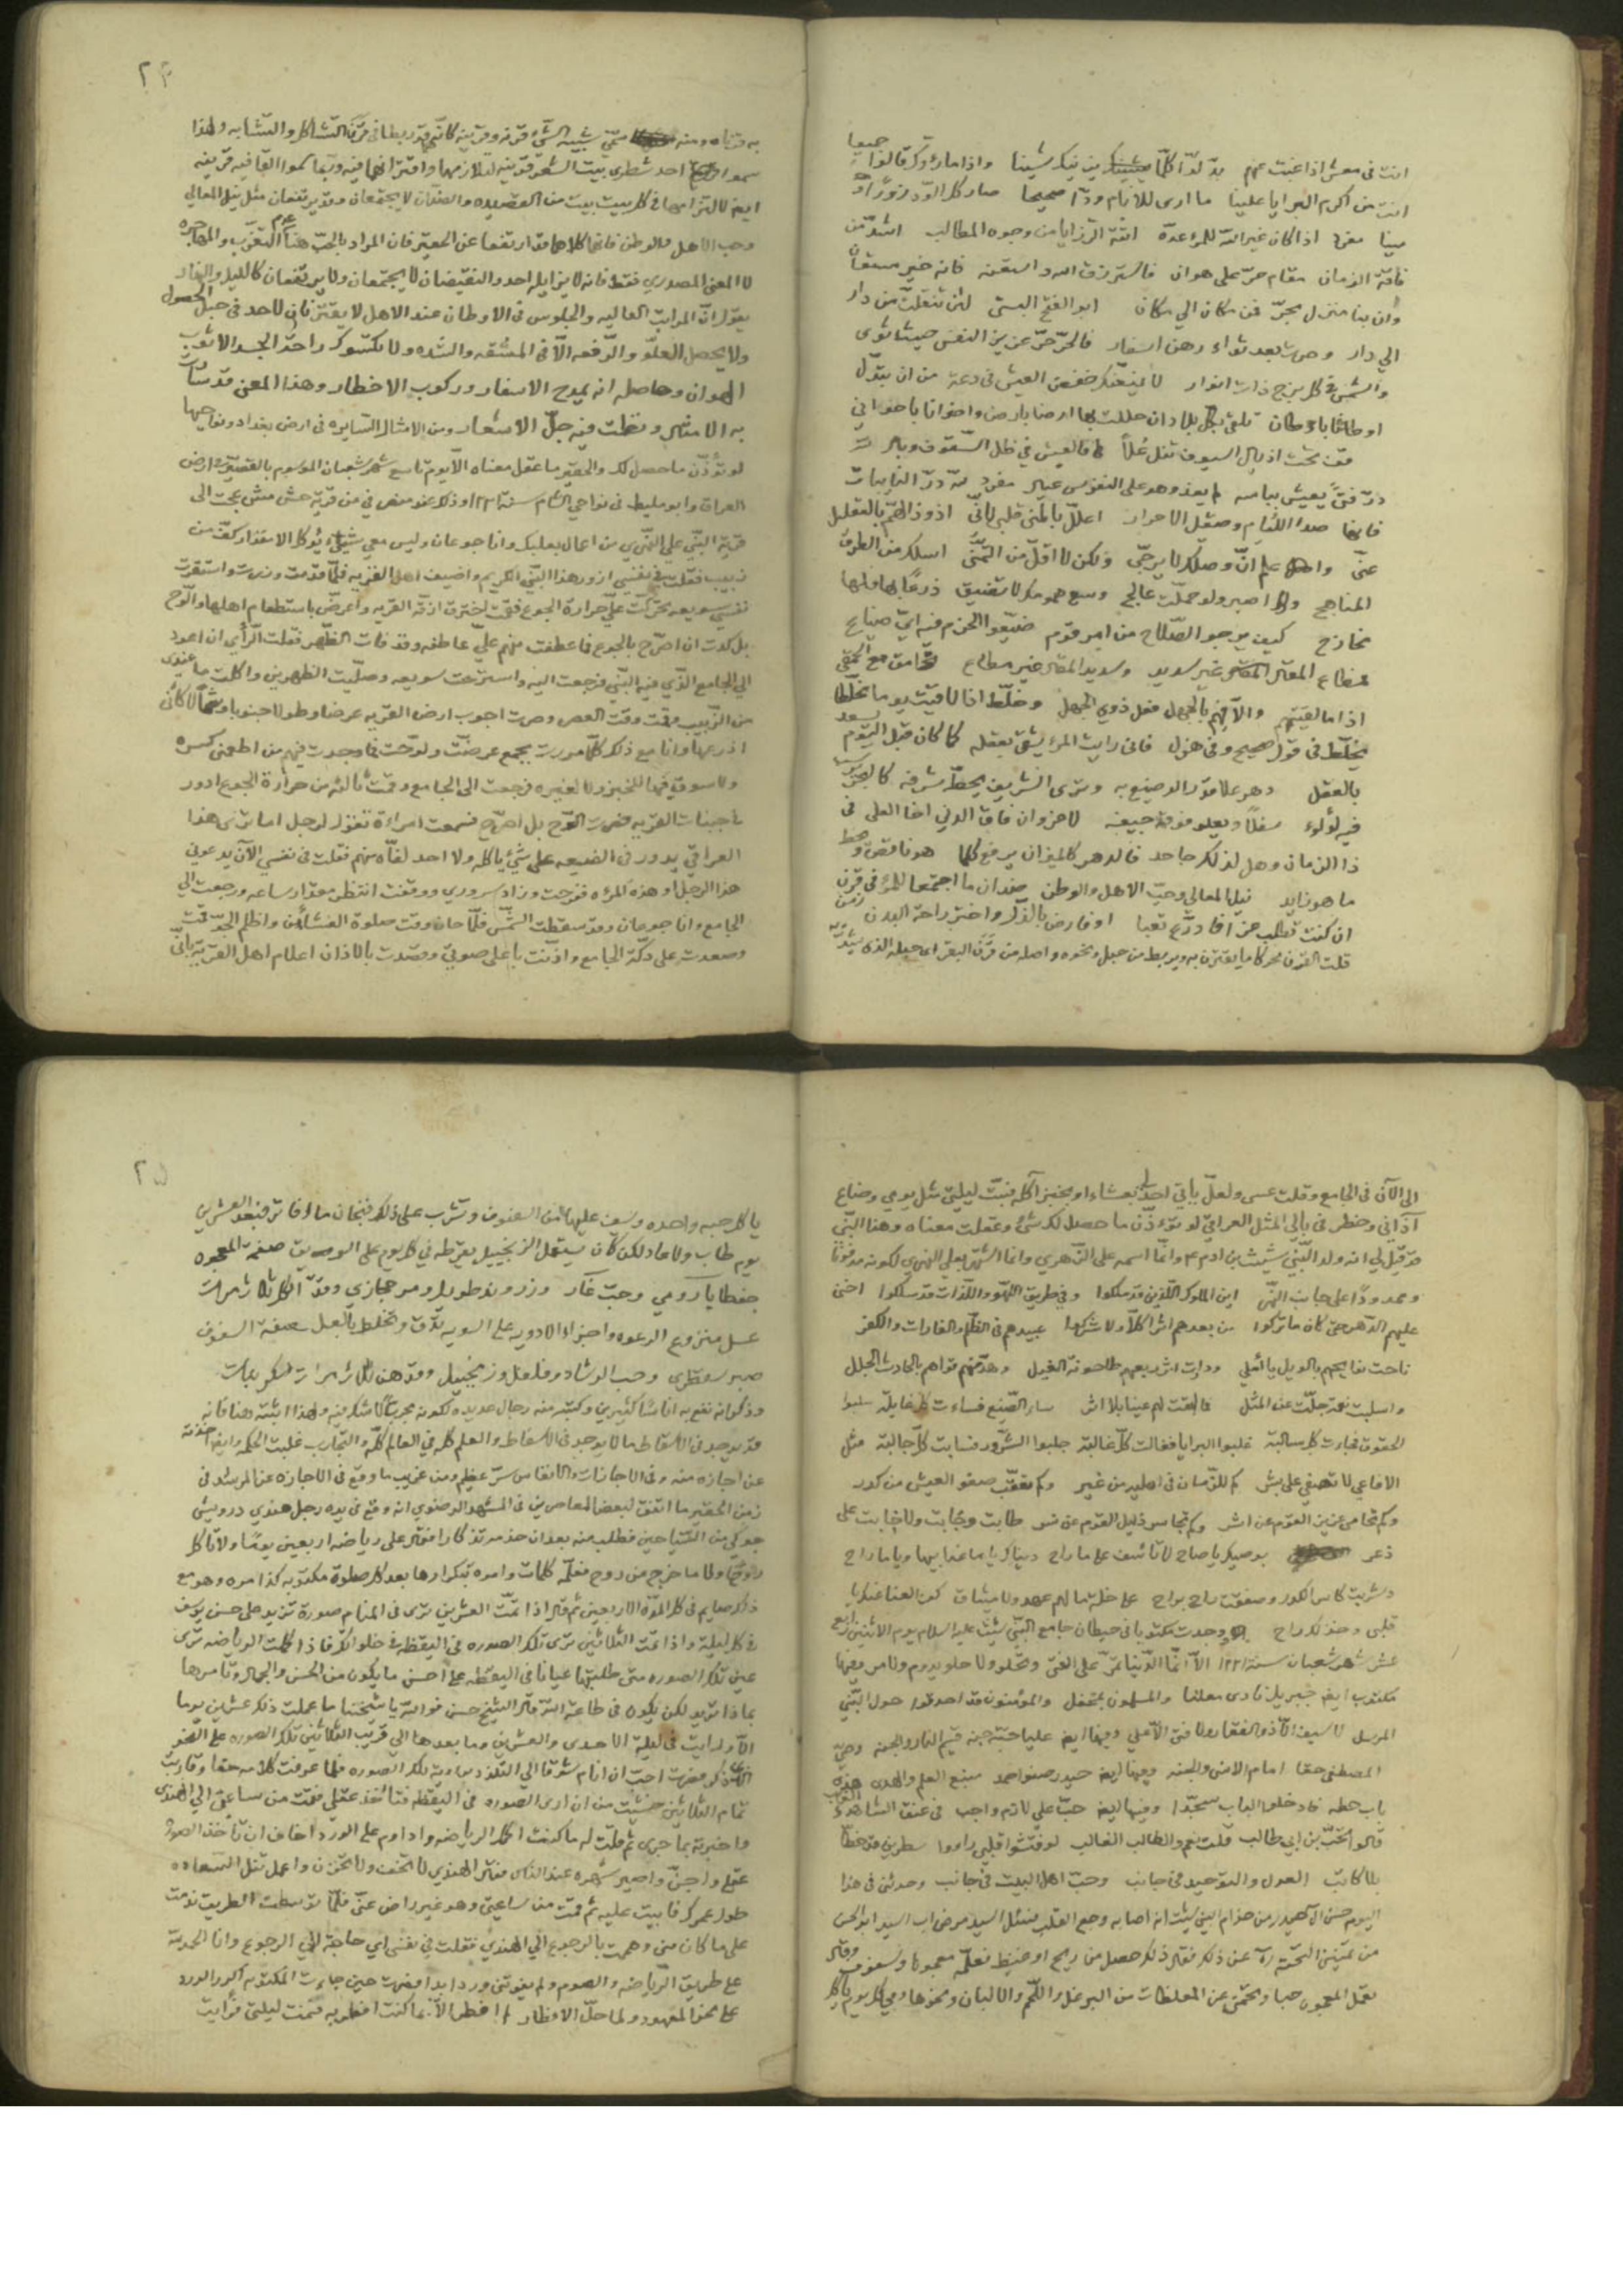 انت في معش اذا غبت عنهم
انت من اكرم البرايا علينا ما ارى للانام ودّا صحيحا صار كل الودّ زورًا
مينا مفرد اذا كان غير الله للمرء عدة اتته الرزايا من وجوه المطالب
فاقة الزمان مقام حرّ على هوان فاسترزق الله واستعنه فانه خير مستعان
وان بنا منزل بحرّ فمن مكان الى مكان ابو الفتح البستي لئن تنقلت من دار
الى دار وصرت بعد ثواء رهن اسفار فالحرّ حرّ عزيز النفس حيث ثوى
والشمس في كل برج ذات انوار لا يمنعنك خفض العيش في دعة من ان تبدّل
اوطانا باوطان تلقى بكل بلاد ان حللت بها ارضا بارض واخوانا باخواني
قف تحت اذيال السيوف تنل علاً فالعيش في ظل السقوف وبال
درّ فتى يعيش بباسه لم يغد وهو على النفوس عيال مفرد لله درّ النايبات
فانها صدا اللئام وصيقل الاحرار اعلل بالمنى قلبي لانّي اذود الهمّ بالتعليل
عنّي واعلم انّ وصلك لا يرجّى ولكن لا اقلّ من التمنّي اسلك من الطرق
المناهج واصبر ولو حملت عالج وسع همومك لا تضيق ذرعًا بها فلها
مخارج كيف يرجو الصلاح من امر قوم ضيّعوا الحزم فيه ايّ ضياع
فمطاع المقال غير سديد وسديد المقال غير مطاع تحامق مع الحمقى
اذا ما لقيتهم ولاقهم بالجهل فعل ذوي الجهل وخلّط اذا لاقيت يوما مخلّطا
يخلّط في قول صحيح وفي هزل فاني رايت المرء يشقى بعقله كما كان قبل اليوم يسعد
بالعقل دهر علا قدر الوضيع به وترى الشريف يحطّه شرفه كالبحر يرسب
فيه لؤلؤه سفلاً ويعلو فوقه جيفه لا غرو ان فاق الدني اخا العلى في
ذا الزمان وهل لذلك جاحد فالدهر كالميزان يرفع كلما هو ناقص ويحط
ما هو زايد نيل المعالي وحبّ الاهل والوطن ضدان ما اجتمعا للمرء في قرن
ان كنت تطلب عزا فادّرع تعبا او فارض بالذل واختر راحة البدن
قلت القرن محركا ما يقترن به ويربط من حبل ونحوه واصله من قرن البقر اى حبله الذى يشدّ
به قرناه ومنه سمّي شبيه الشيء قرنه وقرينه كانّهما قد ربطا في قرن التشاكل والتشابه ولهذا
سموا احد شطري بيت الشعر قرينه لتلازمهما واقترانهما فيه وربّما سموا القافيه قرينه
ايضا لالتزامها في كل بيت بيت من القصيده والضدّان لا يجتمعان وقد يرتفعان مثل نيل المعالي
وحب الاهل والوطن فانهما كلاهما قد ارتفعا عن الحقير فان المراد بالحبّ هنا عدم التغرّب والمهاجره
لا المعنى المصدري فقط فانه لا يزايله احد والنقيضان لا يجتمعان ولا يرتفعان كالليل والنهار
يقول انّ المراتب العاليه والجلوس في الاوطان عند الاهل لا يقترنان لاحد في حبل الحصول
ولا يحصل العلوّ والرّفعه الّا في المشقه والشده ولا يكتسوك راحة الجسد الا ثوب
الهوان وحاصله انه يمدح الاسفار وركوب الاخطار وهذا المعنى قد سارت
به الامثال ونظمت فيه جلّ الاشعار ومن الامثال السايره في ارض بغداد ونواحيها
لو تؤذّن ما حصل لك والحقير ما عقل معناه الّا يوم تاسع شهر شعبان الموسوم بالقصير في ارض
العراق وابو مليط في نواحي الشام سنة ١٢٢١ وذلك عند منصرفي من قرية حش مش عجت الى
قرية النبّي علي النهري من اعمال بعلبك وانا جوعان وليس معي شيئ يؤكل الا مقدار كفّ من
زبيب فقلت في نفسي ازور هذا النبّي الكريم واضيف اهل القريه فلمّا قدمت وزرت واستقرت
نفسي سويعه تحرّكت عليّ حرارة الجوع فقمت اخترق ازقّة القريه واعرّض باستطعام اهلها والوّح
بل كدت ان اصرّح بالجوع فما عطفت منهم عليّ عاطفه وقد فات الظهر فقلت الرأي ان اعود
الى الجامع الذّي فيه النبّي فرجعت اليه واسترحت سويعه وصلّيت الظهرين واكلت ما عندي
من الزبيب وقمت وقت العصر وصرت اجوب ارض القريه عرضا وطولا جنوبا وشمالا كانّي
اذرعها وانا مع ذلك كلّما مررت بجمع عرضّت ولوّحت فما وجدت فيهم من اطعمني كسره
ولا سوق فيها للخبز ولا لغيره فرجعت الى الجامع وقمت ثالثه من حرارة الجوع ادور
في جنبات القريه فصرت الوّح بل اصرّح فسمعت امراءة تقول لرجل اما ترى هذا
العراقي يدور في الضيعه على شيئ ياكله ولا احد لقاه منهم فقلت في نفسي الآن يدعوني
هذا الرجل او هذه المرءه ففرحت وزاد سروري ووقفت انتظر مقدار ساعه ورجعت الى
الجامع وانا جوعان وقد سقطت الشمس فلمّا حان وقت صلوة العشائين واظلم الجوّ قمت
وصعدت على دكّة الجامع واذّنت باعلى صوتي وقصدت بالاذان اعلام اهل القريه بانّي
الى الآن في الجامع وقلت عسى ولعلّ يأتي احد لي بعشاء او بخبز آكله فبتّ ليلتي مثل يومي وضاع
آذاني وخطر في بالي المثل العراقي لو تؤذّن ما حصل لك شيء وعقلت معناه وهذا النبّي
قد قيل لي انه ولد النبّي شيث بن ادم ع وانّما اسمه على الزهري وانما اشتهر بعلي النهري لكونه مدفونًا
وممدودًا على جانب النهر اين الملوك الّذين قد سلكوا وفي طريق اللهّو واللّذات قد سلكوا اخنى
عليهم الدّهر حتى كان ما تركوا من بعدهم اثرا كلّا ولا شركا
ناحت نعايهم بالويل يا املي ودارت اثر ربعهم طاحونة الغيل وهدّمتهم قواهم بالحادث الجلل
واسلبت نعمة جلّت عن المثل فما ابقت لهم عينا بلا اثر ساء الصّنيع فساءت كل غايلة سلبوا
الحقوق فجاءت كل سالبة غلبوا البرايا فغالت كلّ غالبة جلبوا الشرّور فنابت كلّ جالبة مثل
الافاعي لا تصفي على بشر كم للزّمان في اهليه من غير وكم تعقّب صفو العيش من كدر
وكم تحامى عزيز القوم عن اشر وكم تجاسر ذليل القوم عن
يا صاح لا تاسف على ما راح
قلبي وخذ لك راح وجدت مكتوبا في حيطان جامع النبّي شيث عليه السلام يوم الاثنين رابع
عشر شهر شعبان سنة ١٢٢١ الا انّما الدّنيا تمرّ على الفتى وتحلو ولا حلو يدوم ولا مر وفيها
مكتوب ايضا جبريل نادى معلنا والمسلمون بمحفل والمؤمنون قد احدقوا حول النبّي
المرسل لا سيف الّا ذو الفقار ولا فتى الّا علي وفيها ايضا علي حبّه جنه قسيم النار والجنه وصيّ
المصطفى حقا امام الانس والجنه وفيها ايضا حيدر صنو احمد منبع العلم والهدى هذه
باب حطه فادخلوا الباب سجّدا وفيها ايضا حبّ علي لازم واجب في عنق الشاهد والغايب
قالوا تحبّ بن ابي طالب قلت نعم والطالب الغالب لو فتشوا قلبي راووا سطرين قد خطّا
بلا كاتب العدل والتوحيد في جانب وحبّ اهل البيت في جانب وحدثني في هذا
اليوم حسن آل حيدر من خدام النبي شيث انه اصابه وجع القلب فسئل السيد مرضى اب السيد ابو الحسن
من عن ذلك فقال ذلك حصل من ريح او غيظ فعلّمه معجونا وسفوف وقال
تعمل المعجون حبا وتحتمي عن المغلظات من البرغل واللحم والالبان ونحوها وفي كل يوم تاكل
يا كل حبه واحده وتسف عليها من السفوف وتشرب على ذلك فنجان ماء فاتر فبعد العشرين
يوم طاب ولا عاد لكن كان يستعمل الزنجبيل يقرطه في كل يوم على الريق صفة المعجون
جفطا يا رومي وحب غار وزروند طويل ومر حجازي ودقّ الكل
عسل منزوع الرغوه واجزاء الادويه على السويه تدّق وتخلط بالعسل صفة السفوف
صبر سقطري وحب الرشاد وفلفل وزنجبيل ودقّ هن
وذكر انه نفع به اناسًا كثيرين وكتبه منه رجال عديده لكونه مجربًا لا شك فيه ولهذا اثبته هنا فانه
قد يوجد في الاسقاط ما لا يوجد في الاسفاط والعلم كله في العالم كلّه والتجارب غلبت الحكمه وايضا اخذته
عن اجازه منه وفي الاجازات والانفاس سرّ عظيم ومن غريب ما وقع في الاجازه عن المرشد في
زمن الحقير ما اتفق لبعض المعاصرين في المشهد الرضوي انه وقع في يده رجل هندي درويش
جوكي من السّياحين فطلب منه بعد ان خدمه تذكارا فقال على رياضه اربعين يومًا ولا تاكل
روحًا ولا ما خرج من روح فعلّمه كلمات وامره بتكرارها بعد كل صلوة مكتوبه كذا مره وهو مع
ذلك صايم في كل المدّة الاربعين ثم قال اذا تمّت العشرين ترى في المنام صورة تزيد على حسن يوسف
في كل ليلة واذا تمت الثلاثين ترى تلك الصوره في اليقظه في خلواتك فاذا كملت الرياضه ترى
عين تلك الصوره متى طلبتها عيانا في اليقظه على احسن ما يكون من الحسن والجمال وتامرها
بماذا تريد لكن يكون في طاعة الله قال الشيخ حسن فوالله يا شيخنا ما عملت ذلك عشرين يوما
الّا ورايت في ليلة الاحدى والعشرين وما بعدها الى قريب الثلاثين تلك الصوره على النحو
الذّي ذكر فصرت احبّ ان انام شوقا الى التلذذ برؤية تلك الصوره فلما عرفت كلامه حقا وقاربت
تمام الثلاثين خشيت من ان ارى الصوره في اليقظه فتاخذ عقلي فقمت من ساعتي الى الهندي
واخبرته بما جرى ثم قلت له ما كنت اكمل الرياضه واداوم على الورد اخاف ان تاخذ الصوره
عقلي واجنّ واصير شهره عند الناس فقال الهندي لا تخف ولا تحزن واعمل تنل السّعاده
طول عمرك فابيت عليه ثم قمت من ساعتي وهو غير راض عنّي فلمّا توسطت الطريق ندمت
على ما كان مني وهممت بالرجوع الى الهندي فقلت في نفسي اي حاجة الى الرجوع وانا الحمد لله
على طريق الرياضه والصوم ولم يفوتني ورد ابدا فصرت حين جاءت المكتوبه اكرر الورد
على نحو المعهود ولما حلّ الافطار لم افطر الّا بما كنت افطر به فنمت ليلتي فرأيت